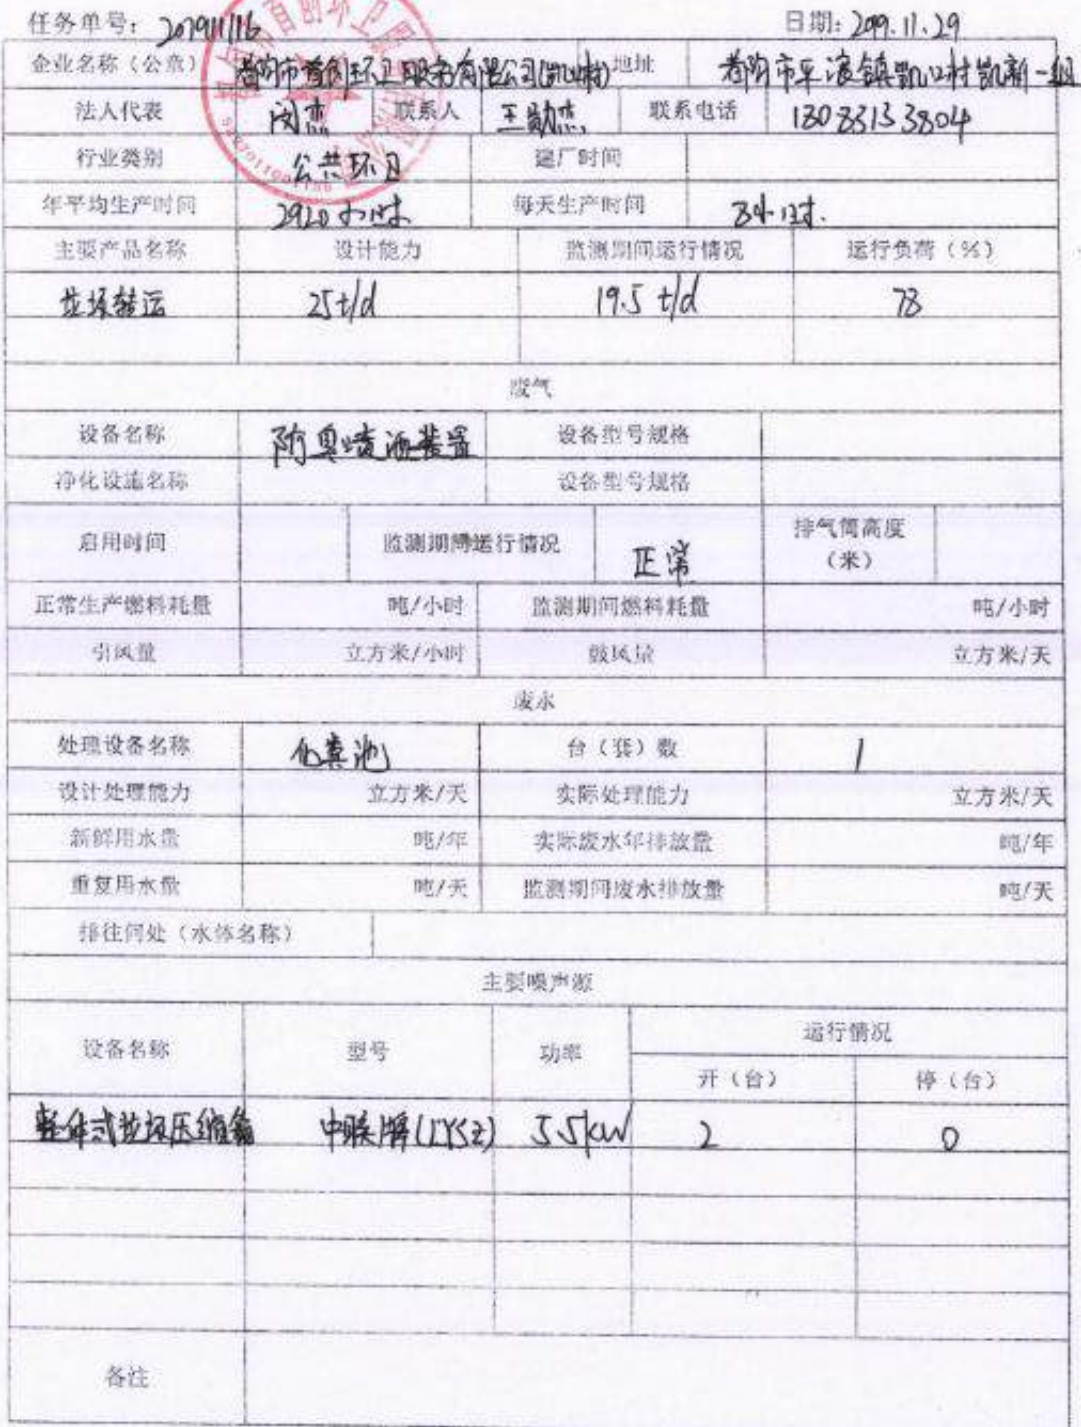 任务单号: 201911116 日期: 2019.11.29
企业名称（公章） 都匀市首创环卫服务有限公司(凯口村) 地址 都匀市平浪镇凯口村凯新一组
法人代表 闵杰 联系人 王勋杰 联系电话 18083153804
行业类别 公共环卫 建厂时间
年平均生产时间 2920小时 每天生产时间 8小时.
主要产品名称 设计能力 监测期间运行情况 运行负荷（%）
垃圾转运 25t/d 19.5 t/d 78
废气
设备名称 除臭喷洒装置 设备型号规格
净化设施名称 设备型号规格
启用时间 监测期间运行情况 正常 排气筒高度
（米）
正常生产燃料耗量 吨/小时 监测期间燃料耗量 吨/小时
引风量 立方米/小时 鼓风量 立方米/天
废水
处理设备名称 化粪池 台（套）数 1
设计处理能力 立方米/天 实际处理能力 立方米/天
新鲜用水量 吨/年 实际废水年排放量 吨/年
重复用水量 吨/天 监测期间废水排放量 吨/天
排往何处（水体名称）
主要噪声源
设备名称 型号 功率 运行情况
开（台） 停（台）
整体式垃圾压缩箱 中联牌(LYSZ) 5.5kW 2 0
备注